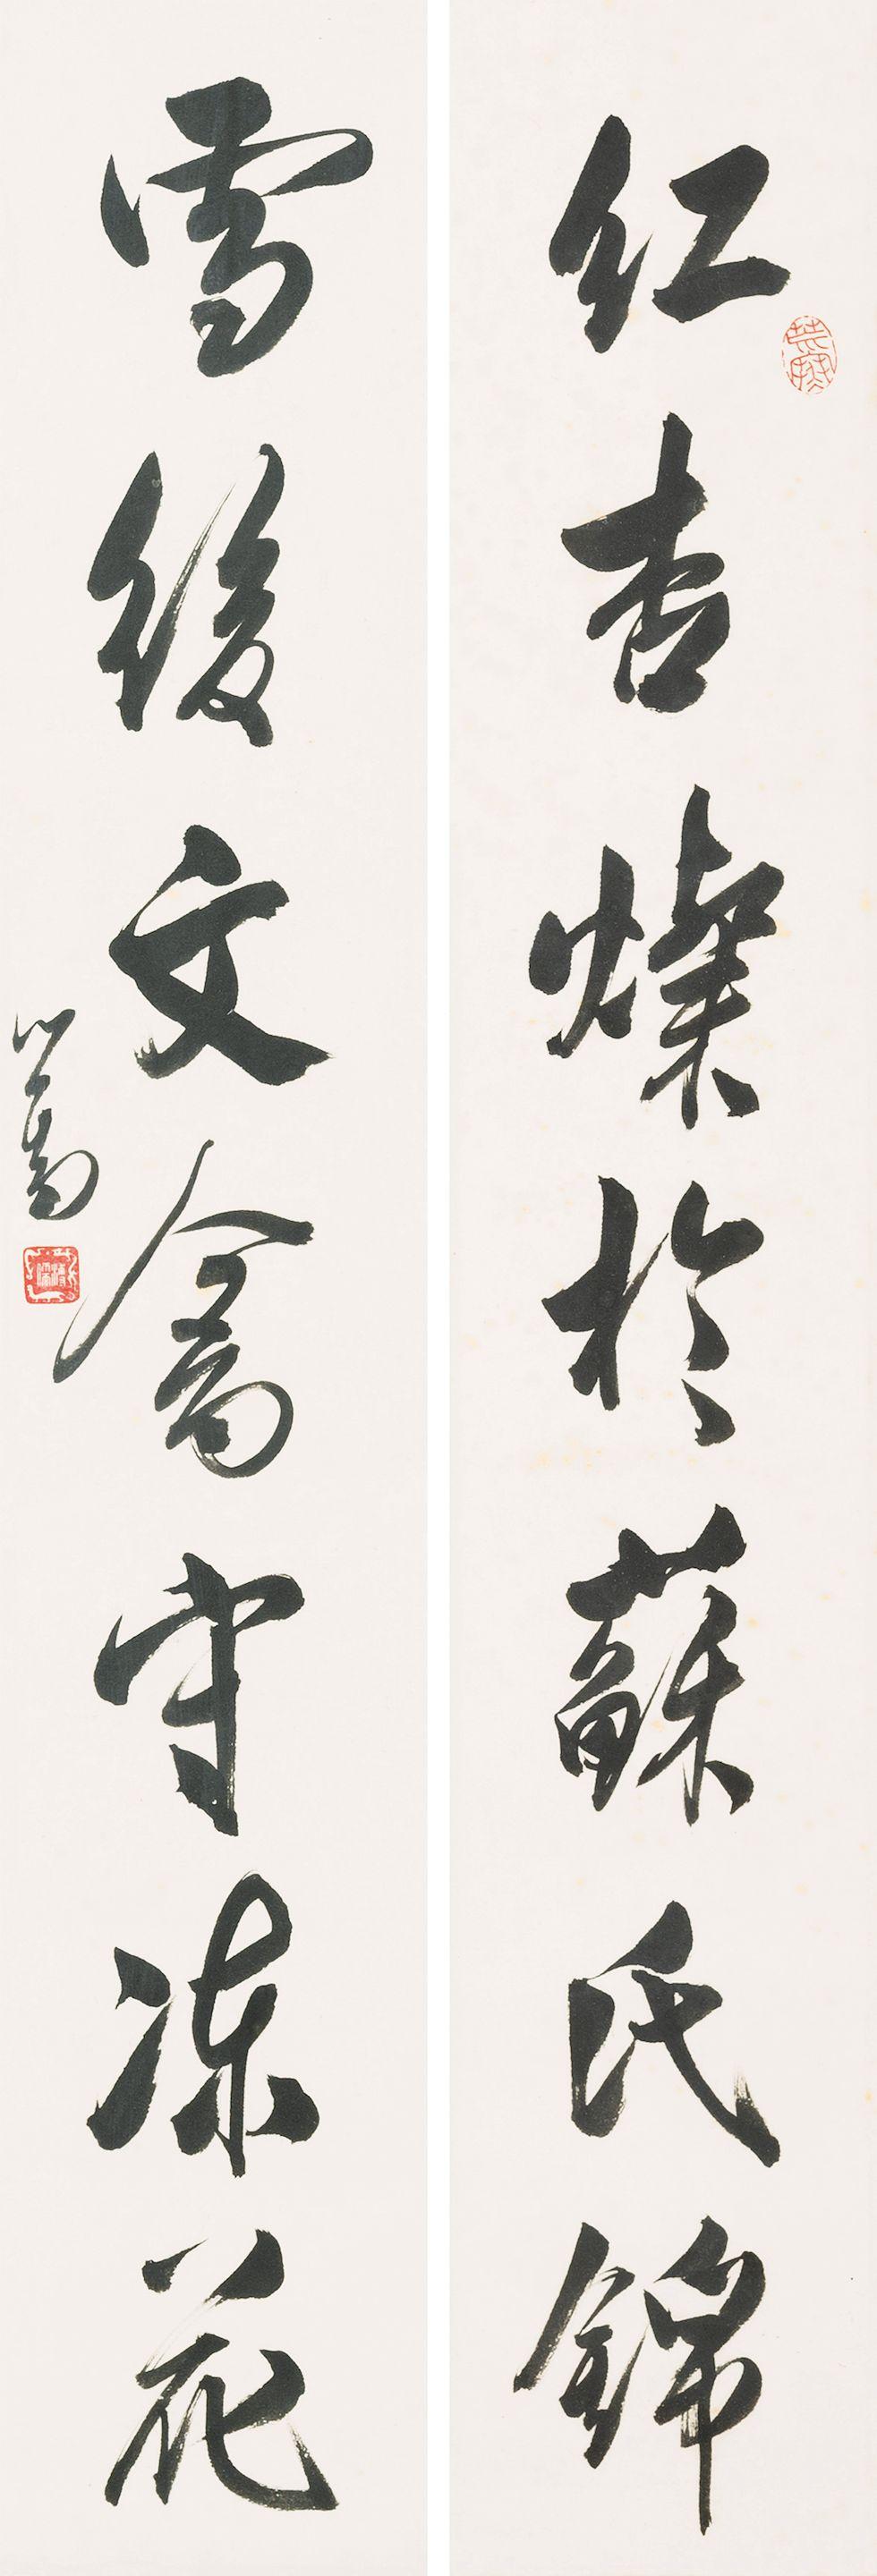 紅杏燦於蘇氏錦
雪後文禽守凍花
心畬